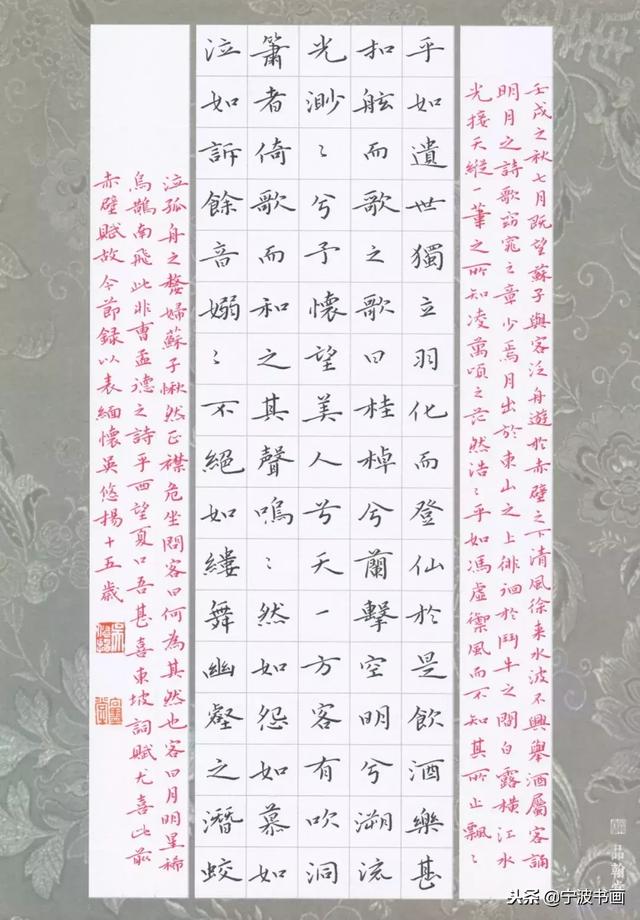 壬戌之秋七月既望蘇子與客泛舟遊於赤壁之下清風徐来水波不興舉酒屬客誦
明月之詩歌窈窕之章少焉月出於東山之上徘徊於鬥牛之間白露橫江水
光接天縱一葦之所知凌萬頃之茫然浩〻乎如馮虛禦風而不知其所止飄〻
乎如遺世獨立羽化而登仙於是飲酒樂甚
扣舷而歌之歌曰桂棹兮蘭擊空明兮溯流
光渺〻兮予懷望美人兮天一方客有吹洞
簫者倚歌而和之其聲嗚〻然如怨如慕如
泣如訴餘音嫋〻不絕如縷舞幽壑之潛蛟
泣孤舟之嫠婦蘇子愀然正襟危坐問客曰何為其然也客曰月明星稀
烏鵲南飛此非曹孟德之詩乎西望夏口吾甚喜東坡詞賦尤喜此前
赤壁賦故今節録以表緬懷吳悠揚十五歲
头条@宁波书画